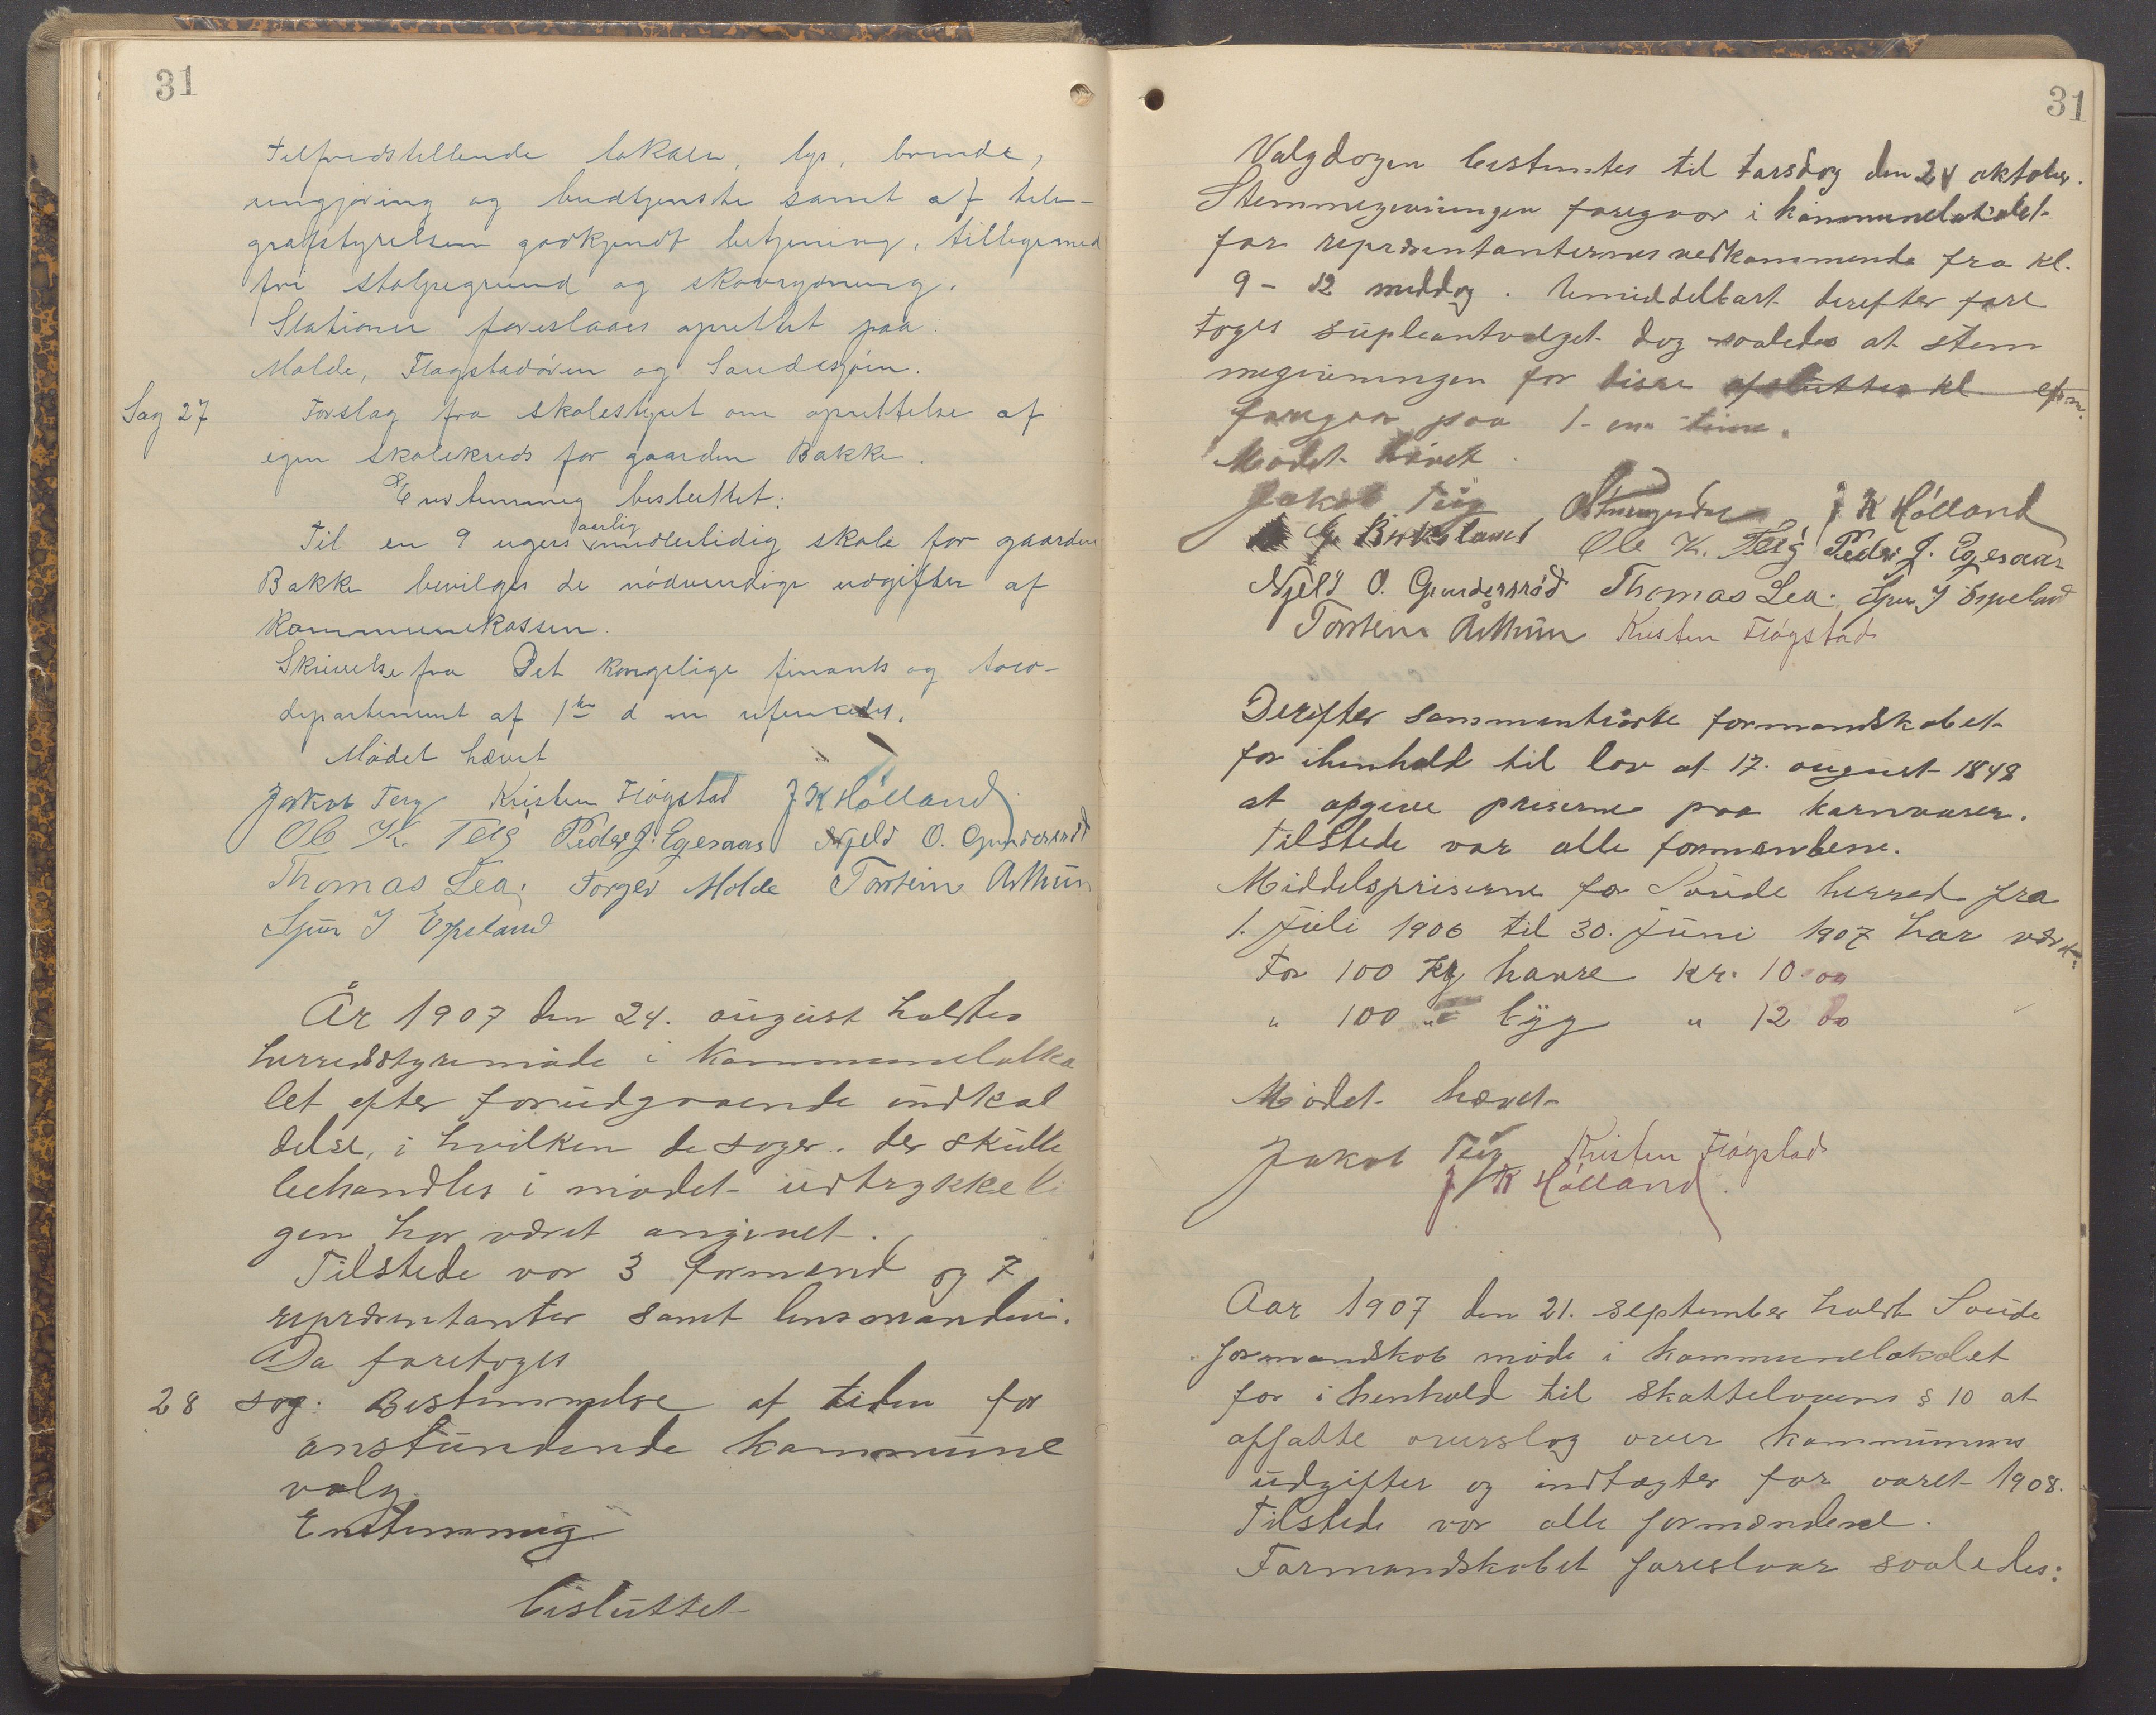 31
tilfredstillende lokale, lys, brænde,
rengjøring og budtjeneste samt af tele-
grafstyrelsen godkjendt betjening, tilligemed
fri stolpegrund og skovrydning.
Stationer foreslaaes oprettet paa
Molde, Fløgstadøren og Saudesjøen.
Sag 27 Forslag fra skolestyret om oprettelse af
egen skolekreds for gaarden Bakke.
Enstemmig besluttet:
Til en 9 ugers aarlig midlertidig skole for gaarden
Bakke bevilges de nødvendige udgifter af
kommunekassen.
Skrivelse fra Det kongelige finants og told-
departement af 1ste d m refereredes.
Mødet hævet
Jakob Teig Kristen Fløgstad J K Hölland
Ole K. Teig Peder J. Egesaas Njeld O. Gundersrød
Thomas Lea. Torgei Molde Torstein Arthun
J Espeland
År 1907 den 24. august holdtes
herredsstyremøde i kommunelokka
let efter forudgaaende indkal
delse, i hvilken de sager der skulle
behandles i mødet udtrykkeli
gen har været angivet.
Tilstede var 3 formænd og 7
repræsentanter samt lensmanden.
Da foretoges
28 sag. Bestemmelse af tiden for
anstundende kommune
valg.
Enstemmig
besluttet
31
Valgdagen bestemtes til torsdag den 24 oktober.
Stemmegivningen foregaar i kommunelokalet
for repræsentanternes vedkommende fra kl.
9 - 12 middag. Umiddelbart derefter fore
toges supleantvalget dog saaledes at stem
megivningen for disse afsluttes kl. efm.
foregaar paa 1 - en time.
Mødet hævet
Jakob Teig J K Hölland
G. Birkeland Ole K. Teig Peder J. Egesaas
Njeld O. Gundersrød Thomas Lea. J Espeland
Torstein Arthun Kristen Fløgstad
Derefter sammentraadte formandskabet
for ihenhold til lov af 17. august 1848
at opgive priserne paa kornvarer.
Tilstede var alle formændene.
Middelspriserne for Saude herred fra
1. Juli 1906 til 30. Juni 1907 har været:
For 100 Kg havre Kr. 10.00
" 100 " byg " 12 00
Mødet hævet
Jakob Teig Kristen Fløgstad
J K Hölland
Aar 1907 den 21. september holdt Saude
formandskab møde i kommunelokalet
for i henhold til skattelovens § 10 at
affatte overslag over kommunens
udgifter og indtægter for aaret 1908.
Tilstede var alle formændene.
Formandskabet foreslaar saaledes: